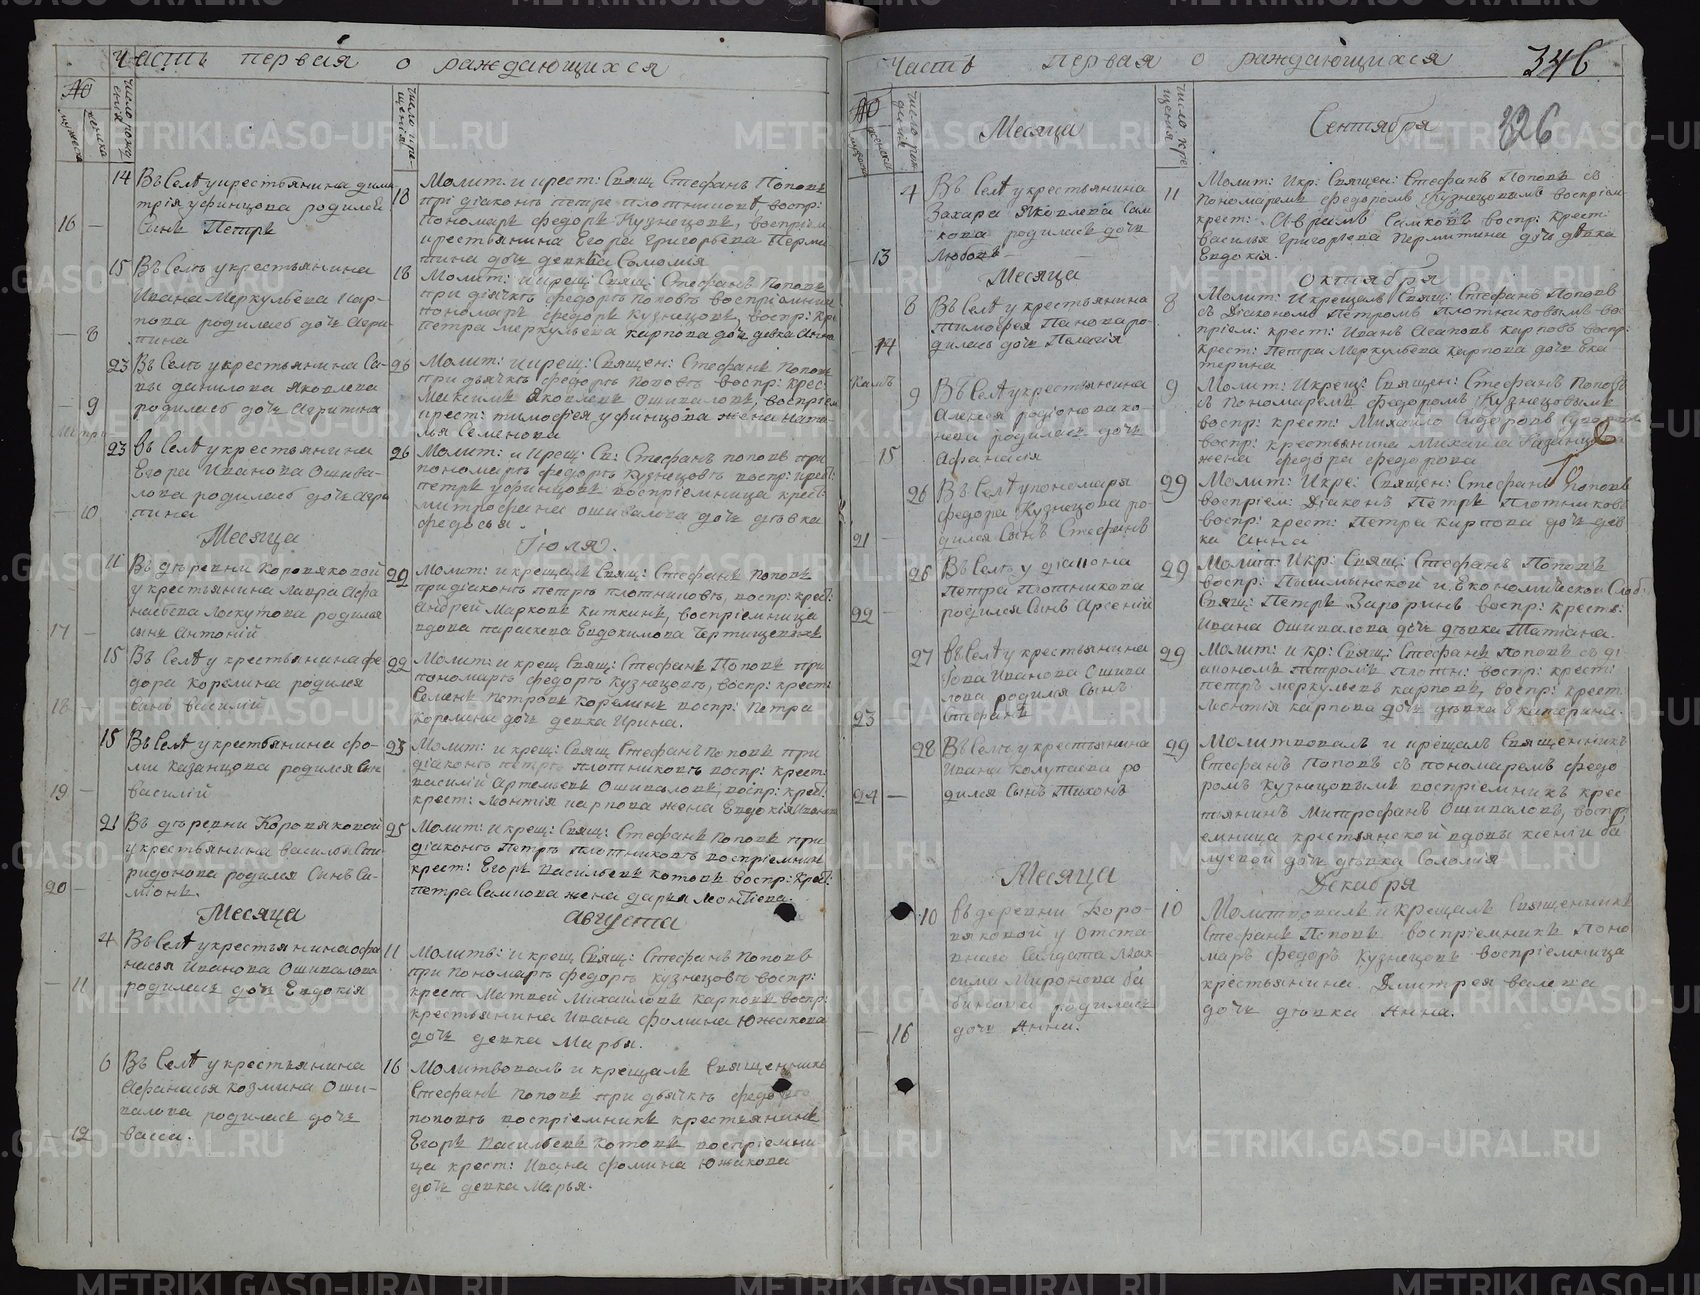 Часть первая о раждающихся
№
мужеска
женска
число рожде-
ния
число креще-
щения
14 Въ селѣ у крестьянина дими
трія уфинцова родился
16 — Сынъ Петръ
18 Молит. и крест: Свящ Стефанъ Поповъ
при діаконѣ петре плотниковѣ, воспр:
пономаръ федоръ Кузнецовъ, воспріем
крестьянина Егора григорьева Перми
тина дочь девка Соломия
15 Въ селѣ у крестьянина
Ивана Меркульева Кар-
пова родилась дочь Агри-
— 8 пина
18 Молит: и крещ: Свящ: Стефанъ Поповъ
при дьячкѣ федорѣ Поповѣ воспріемник
пономаръ федоръ Кузнецовъ, воспр: кре
петра меркульева карпова дочь девка Анна
23 Въ селѣ у крестьянина Са-
вы данилова Яковлева
— 9 родилась дочь Агрипина
26 Молит: и крещ: Священ: Стефанъ Поповъ
при дьячкѣ федорѣ Поповѣ воспр: крес:
Максимъ Яковлевъ Ошиваловъ, воспріем
крест: тимофея уфинцова жена Ната-
лья Семенова
23 въ селѣ у крестьянина
Егора Иванова Ошива-
лова родилась дочь Агри
— 10 пина
26 Молит: и крещ: Св: Стефанъ поповъ при
пономарѣ федорѣ кузнецовѣ воспр: крест:
петръ уфинцовъ воспріемница крест
митрофана ошивалова дочь дѣвка
федосья.
Месяца Іюля.
11 Въ дѣревни Коровяковой
у крестьянина Лавра Афа
насьева Лоскутова родился
17 — сынъ Антоній
22 Молит: и крещалъ Свящ: Стефанъ Поповъ
при діаконѣ петрѣ плотниковѣ, воспр: крест:
Андрей Марковъ киткинъ, воспріемница
вдова параскева Евдокимова Чертищева
15 Въ селѣ у крестьянина фе
дора корелина родился
18 — Сынъ василій
22 Молит: и крещ Свящ: Стефанъ Поповъ при
пономарѣ федорѣ кузнецовѣ, воспр: крест:
Семенъ Петровъ корелинъ воспр: Петра
корелина дочь девка Ирина.
15 Въ селѣ у крестьянина фо-
ми казанцова родился Сын
19 — василій
23 Молит: и крещ: Свящ Стефанъ поповъ при
діаконѣ петрѣ плотниковѣ воспр: крест:
василій Артемьевъ Ошиваловъ, воспр: крест:
крест: леонтія карпова жена Евдокія Иванова
21 Въ дѣревни Коровяковой
у крестьянина василья Спи-
ридонова родился Сынъ Си-
20 — міонъ.
25 Молит: и крещ: Свящ: Стефанъ Поповъ при
діаконѣ Петрѣ плотниковѣ воспріемникъ
крест: Егоръ васильевъ котовъ воспр: крест:
петра Самкова жена дарья леонтіева.
Месяца Августа
4 Въ селѣ у крестьянина Афа
насья Иванова Ошивалова
— 11 родилась дочь Евдокія
11 Молитв: и крещ Свящ: Стефанъ Поповъ
при пономарѣ федорѣ кузнецовѣ воспр:
крест Матвей Михайловъ карповъ воспр:
крестьянина Ивана фомина Южакова
дочь девка Марья.
6 Въ селѣ у крестьянина
Афанасья козмина Оши-
валова родилась дочь
— 12 васса.
16 Молитвовалъ и крещалъ Священникъ
Стефанъ поповъ при дьячкѣ федорѣ
поповѣ воспріемникъ крестьянинъ
Егоръ васильевъ котовъ воспріемни-
ца крест: Ивана фомина Южакова
дочь девка Марья.
Часть первая о раждающихся
346
226
№
Месяца Сентября
4 Въ селѣ у крестьянина
Захара Яковлева Сам
кова родилась дочь
— 13 Любовь —
11 Молит: И кр: Священ: Стефанъ Поповъ съ
пономаремъ федоромъ Кузнецовымъ воспріем-
крест: Аврамъ Самковъ воспр: крест:
василья григорьева Пермитина дочь девка
Евдокія
Месяца Октября
8 Въ селѣ у крестьянина
Тимофея Панова ро-
14 дилась дочь Пелагія
8 Молит: И крещалъ Свящ: Стефанъ Поповъ
съ Діакономъ Петромъ Плотниковымъ во-
пріем: крест: Иванъ Агаповъ карповъ воспр:
крест: Петра Меркульева карпова дочь Ека
терина
9 Въ селѣ у крестьянина
Алексея родіонова ко-
нева родилась дочь
15 Афанасія
9 Молит: И крещ: Священ: Стефанъ Поповъ
съ Пономаремъ федоромъ Кузнецовымъ
воспр: крест: Михайло Сидоровъ
воспр: крестьянина Михайла Казанцова
жена федора федорова
26 Въ селѣ у пономаря
федора Кузнецова ро-
21 — дился Сынъ Стефанъ
29 Молит: И кре: Священ: Стефанъ Поповъ
воспріем: Діаконъ Петръ Плотниковъ
воспр: крест: Петра Карпова дочь дев
ка Анна
26 Въ селѣ у діакона
Петра Плотникова
22 — родился Сынъ Арсеній
29 Молит: И кр: Свящ: Стефанъ Поповъ
воспр: Пышминской и Економической Слоб:
Свящ: Петръ Загоринъ воспр: крестья:
Ивана Ошивалова дочь дѣвка Татіана.
27 въ селѣ у крестьянина
Іова Иванова Ошива
лова родился Сынъ
23 Стефанъ
29 Молит: и кр: Свящ: Стефанъ Поповъ съ ді-
акономъ петромъ плотн: воспр: крест:
петръ меркульевъ карповъ, воспр: крест:
леонтія карпова дочь дѣвка Екатерина.
28 Въ селѣ у крестьянина
Ивана Колупаева ро-
24 — дился Сынъ Тихонъ
29 Молитвовалъ и крещалъ Священникъ
Стефанъ Поповъ съ пономаремъ федо
ромъ Кузнецовымъ воспріемникъ крес
тьянинъ Митрофанъ Ошиваловъ, воспр:
емница крестьянской вдовы ксеніи
дочь дѣвка Соломія
Месяца Декабря
10 въ деревни Коро-
вяковой у Отста-
внаго Солдата Мак
сима Миронова ба
бинова родилась
— 16 дочь Анна.
10 Молитвовалъ и крещалъ Священникъ
Стефанъ Поповъ воспріемникъ Поно
маръ федоръ Кузнецовъ воспріемница
крестьянина Дмитрея валева
дочь дѣвка Анна.